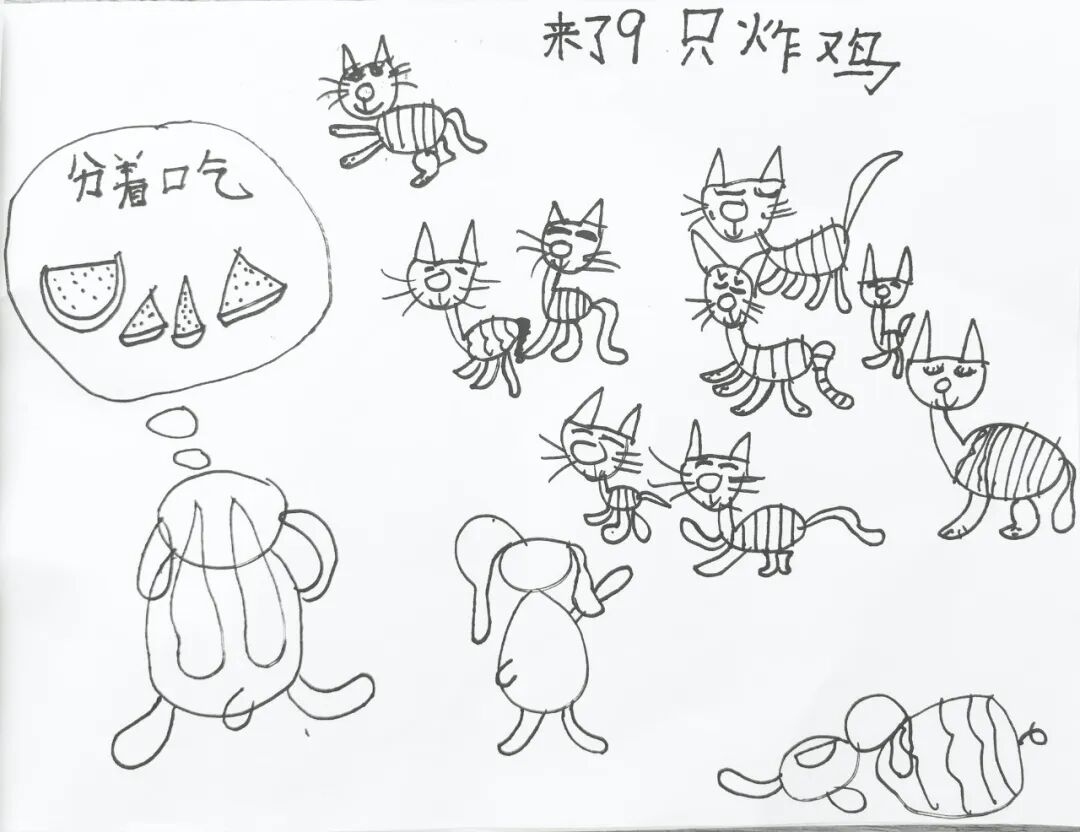 来了9只炸鸡
分着口吃